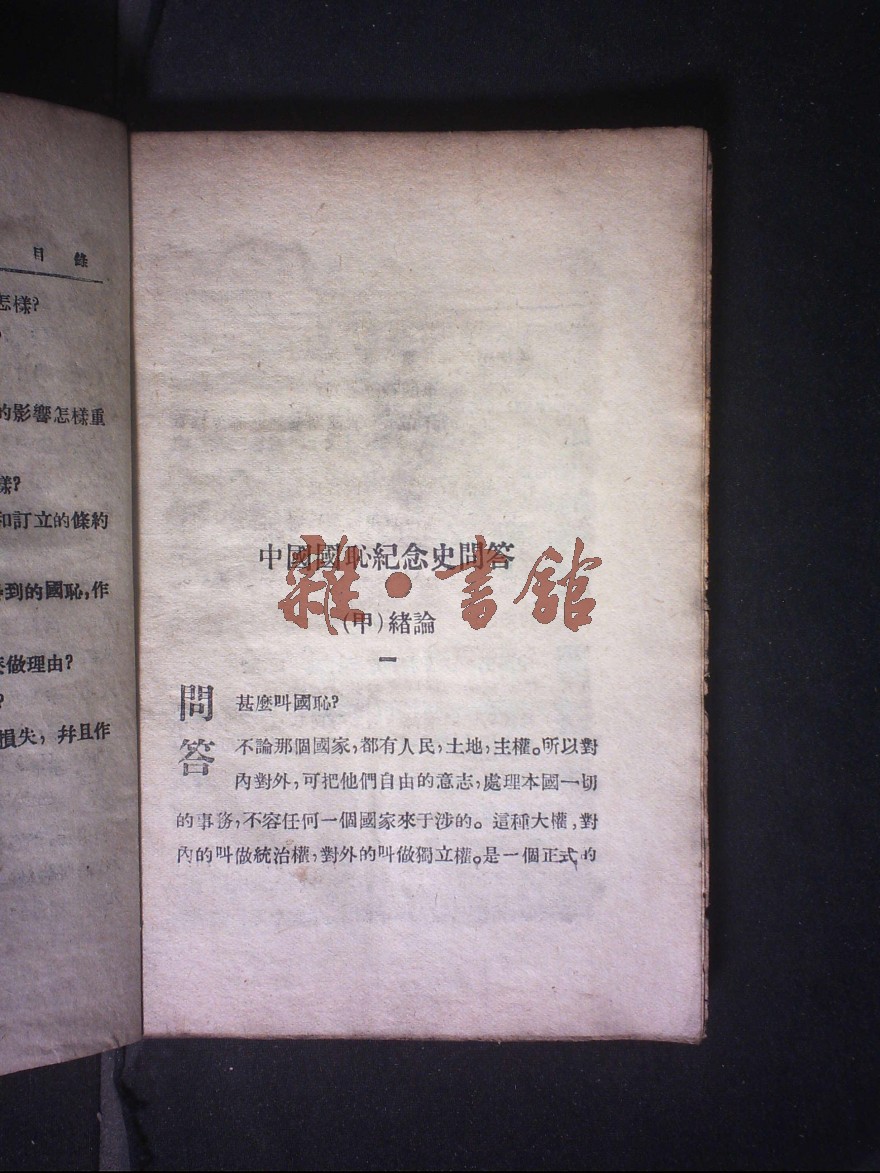 目 錄
怎樣?
的影響怎樣重
樣?
和訂立的條約
到的國恥,作
做理由?
?
損失, 幷且作
中國國恥紀念史問答
雜·書館
(甲)緒論
一
問 甚麼叫國恥?
答 不論那個國家,都有人民,土地,主權。所以對
內對外,可把他們自由的意志,處理本國一切
的事務,不容任何一個國家來干涉的。這種大權,對
內的叫做統治權,對外的叫做獨立權。是一個正式的